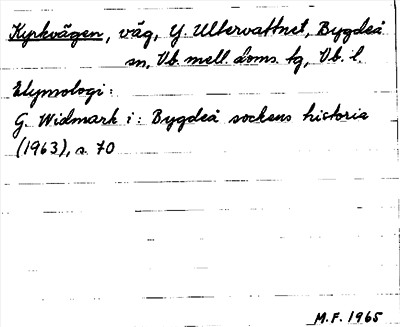 Kyrkvägen, väg, Y. Ultervattnet, Bygdeå
sn, Vb. mell. doms. tg, Vb. l.
Etymologi:
G. Widmark i: Bygdeå sockens historia
(1963), s. 70
M.F. 1965